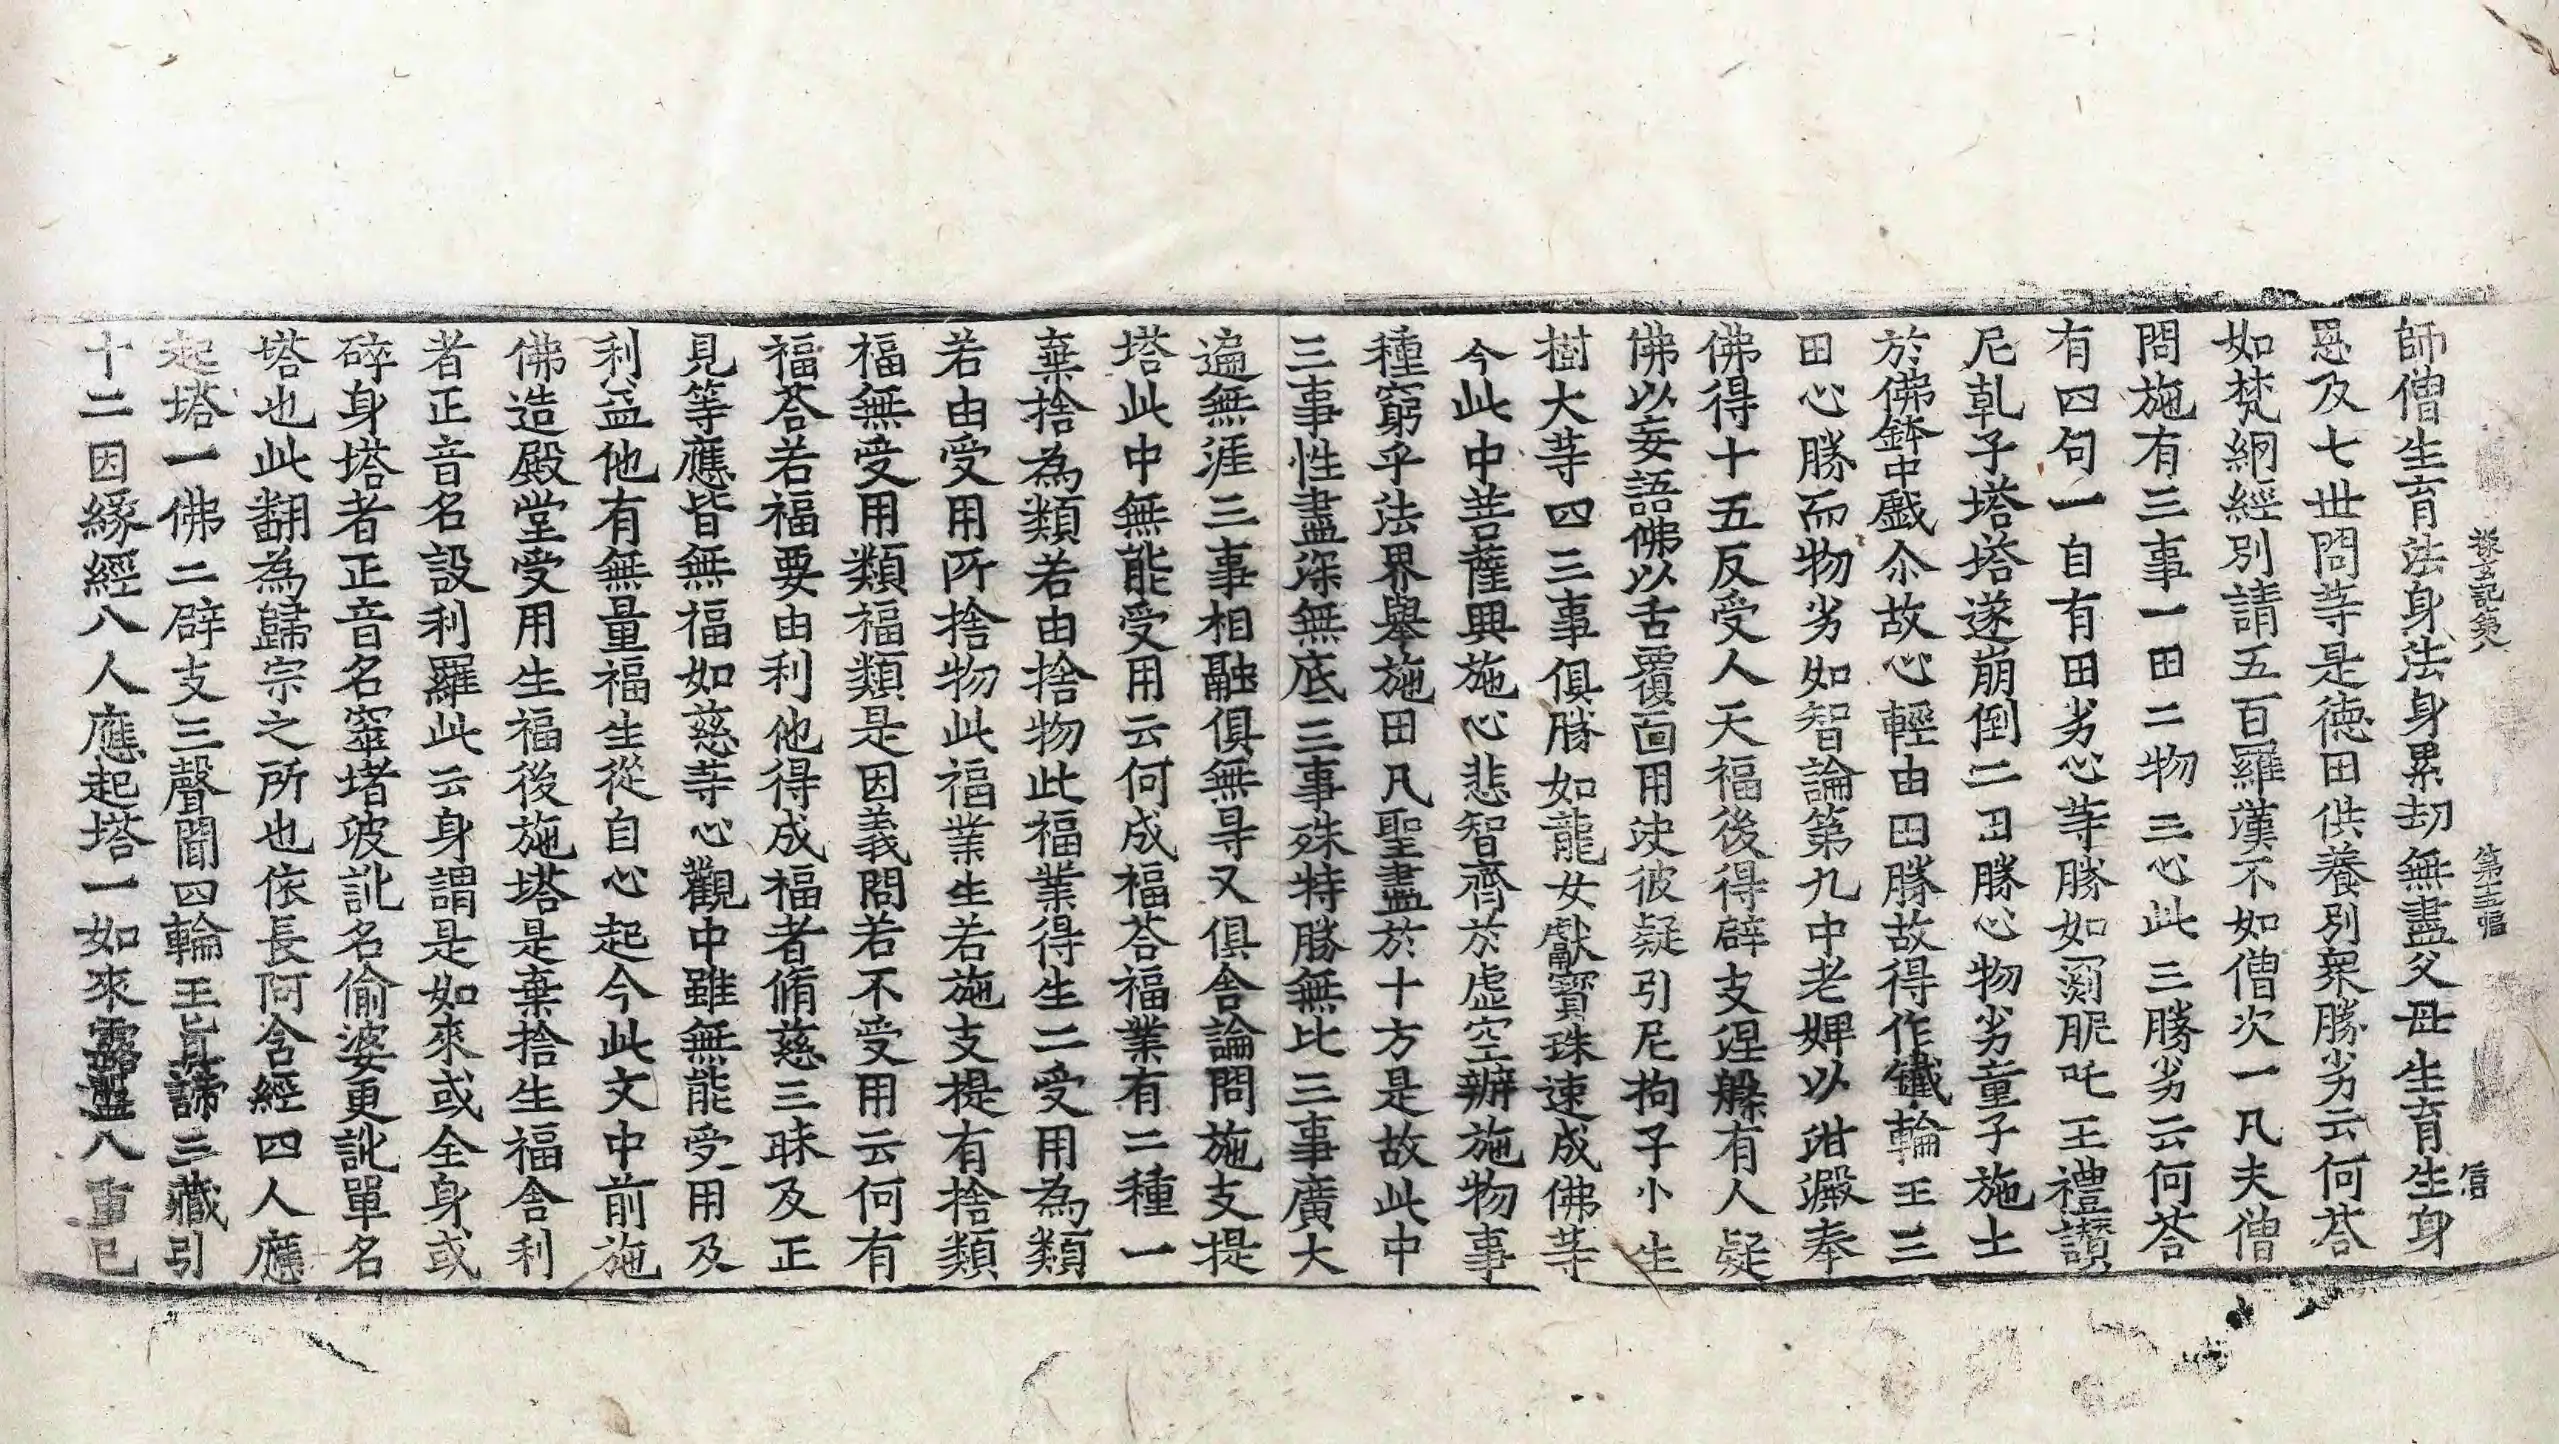 探玄記第八 第十五幅 信
師僧生育法身法身累刧無盡父母生育生身
恩及七世問䓁是徳田供養別衆勝劣云何荅
如梵網經別請五百羅漢不如僧次一凡夫僧
問施有三事一田二物三心此三勝劣云何荅
有四句一自有田劣心䓁勝如罽昵吒王禮讃
尼乹子塔塔遂崩倒二田勝心物劣童子施土
於佛鉢中戲尒故心輕由田勝故得作鐵輪王三
田心勝而物劣如智論第九中老婢以泔澱奉
佛得十五反受人天福後得辟支涅槃有人疑
佛以妄語佛以舌覆面用決彼疑引尼拘子小生
樹大䓁四三事俱勝如龍女獻寶珠速成佛䓁
今此中菩薩興施心悲智齊於虛空辦施物事
種窮乎法界舉施田凡聖盡於十方是故此中
三事性盡深無底三事殊特勝無比三事廣大
遍無涯三事相融俱無㝵又俱舍論問施支提
塔此中無能受用云何成福荅福業有二種一
棄捨為類若由捨物此福業得生二受用為類
若由受用所捨物此福業生若施支提有捨類
福無受用類福類是因義問若不受用云何有
福荅若福要由利他得成福者脩慈三昧及正
見等應皆無福如慈䓁心觀中雖無能受用及
利益他有無量福生從自心起今此文中前施
佛造殿堂受用生福後施塔是棄捨生福舍利
者正音名設利羅此云身謂是如來或全身或
碎身塔者正音名窣堵波訛名偷婆更訛單名
塔也此翻為歸宗之所也依長阿含經四人應
起塔一佛二辟支三聲聞四輪王真諦三藏引
十二因緣經八人應起塔一如來露盤八重已